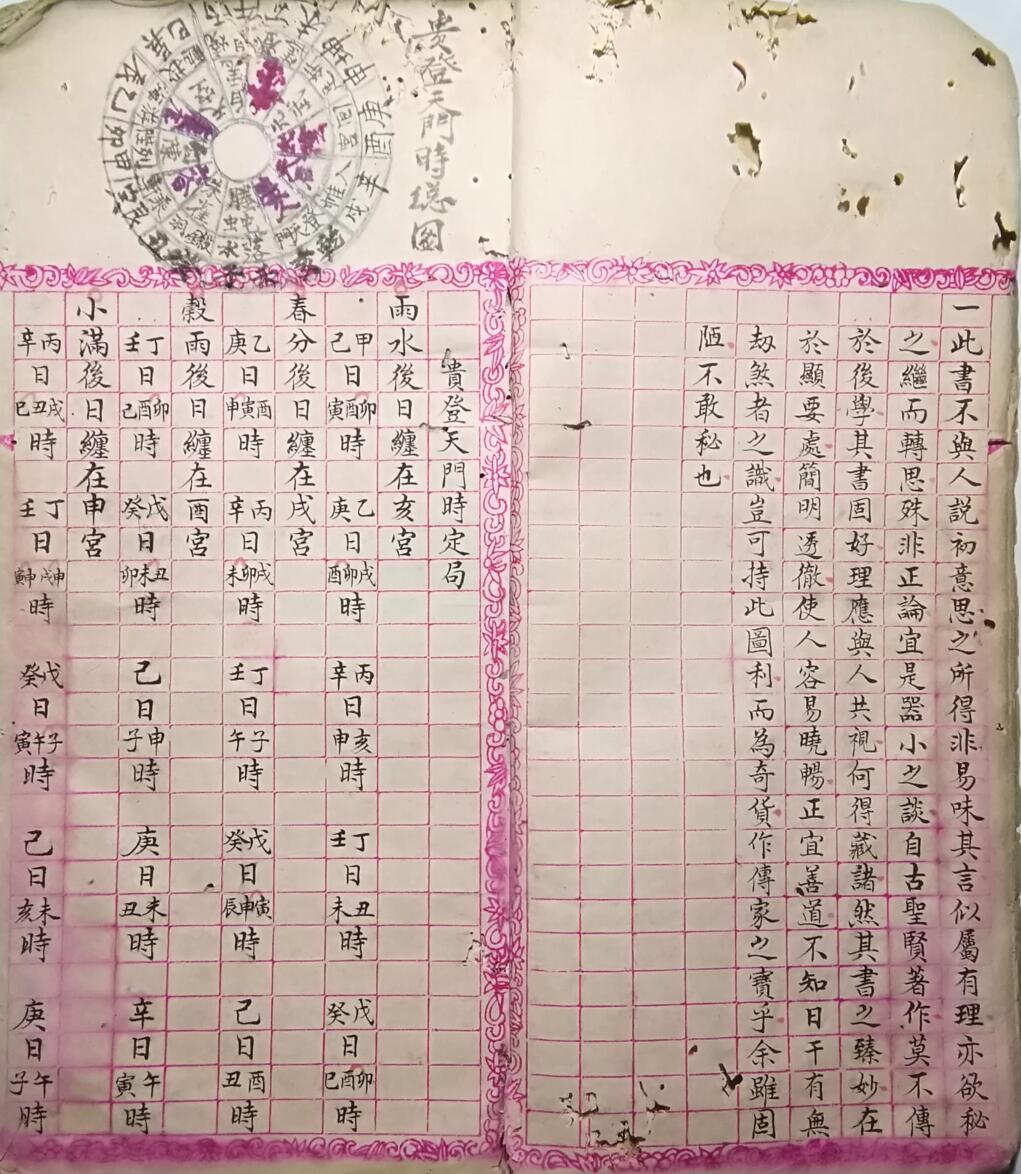 一此書不與人説初意思之所得非易味其言似屬有理亦欲秘
之繼而轉思殊非正論宜是器小之談自古聖賢著作莫不傳
於後學其書固好理應與人共視何得藏諸然其書之臻妙在
於顯要處簡明透徹使人容易曉暢正宜善道不知日干有無
刼煞者之識豈可持此圖利而為奇貨作傳家之寶乎余雖固
陋不敢秘也
貴登天門時総图
貴登天門時定局
雨水後日纏在亥宮
甲己日卯酉寅時 乙庚日戌卯酉時 丙辛日亥申時 丁壬日丑未時 戊癸日卯酉巳時
春分後日纏在戌宮
乙庚日酉寅申時 丙辛日戌卯未時 丁壬日子午時 戊癸日寅申辰時 己日酉丑時
穀雨後日纏在酉宮
丁壬日卯酉己時 戊癸日丑未卯時 己日申子時 庚日未丑時 辛日午寅時
小滿後日纏在申宮
丙辛日戌丑巳時 丁壬日申戌申寅時 戊癸日子午寅時 己日未亥時 庚日午子時